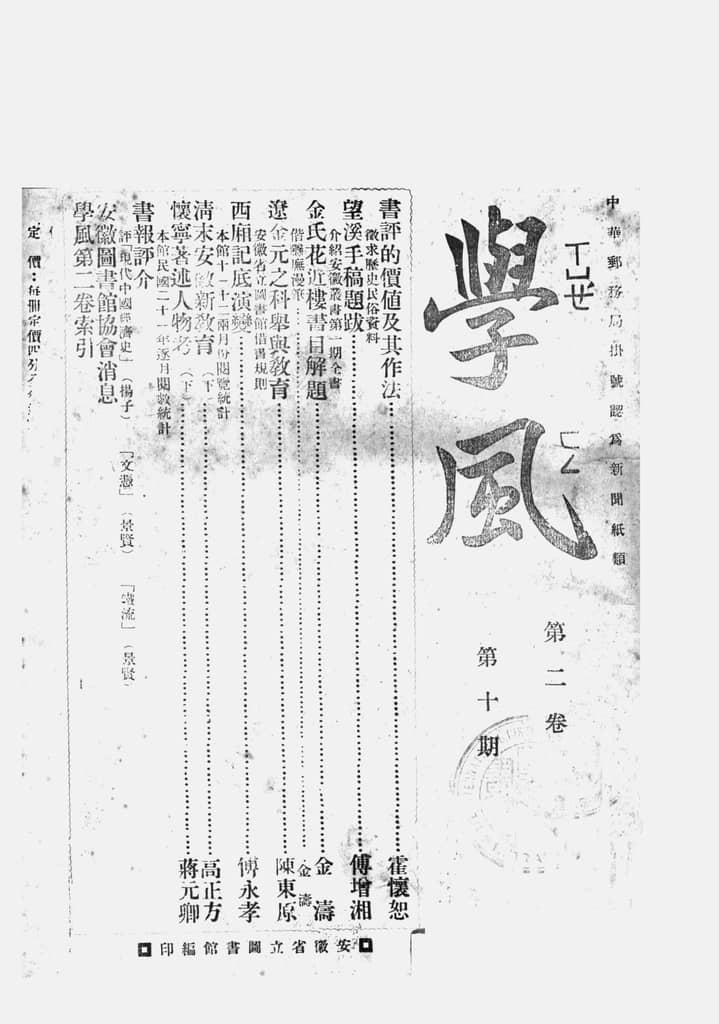 中華郵務局掛號認爲新聞紙類
學風
ㄒㄩㄝ
ㄈㄥ
第二卷
第十期
書評的價値及其作法……霍懷恕
徵求歷史民俗資料
望溪手稿題跋……傅增湘
介紹安徽叢書第一期全書
金氏花近樓書目解題……金濤
偕⋯漫筆……金濤
遼金元之科舉與敎育……陳東原
安徽省立圖書館借書規則
西廂記底演變……傅永孝
本館十一十二兩月份閱覽統計
淸末安徽新敎育(下)……高正方
懷寧著述人物考(下)……蔣元卿
本館民國二十一年逐月閱覽統計
書報評介
評「現代中國經濟史」(揚子) 「文憑」(景賢) 「流」(景賢)
安徽圖書館協會消息
學風第二卷索引
定價:每冊定價四分
安徽省立圖書館編印